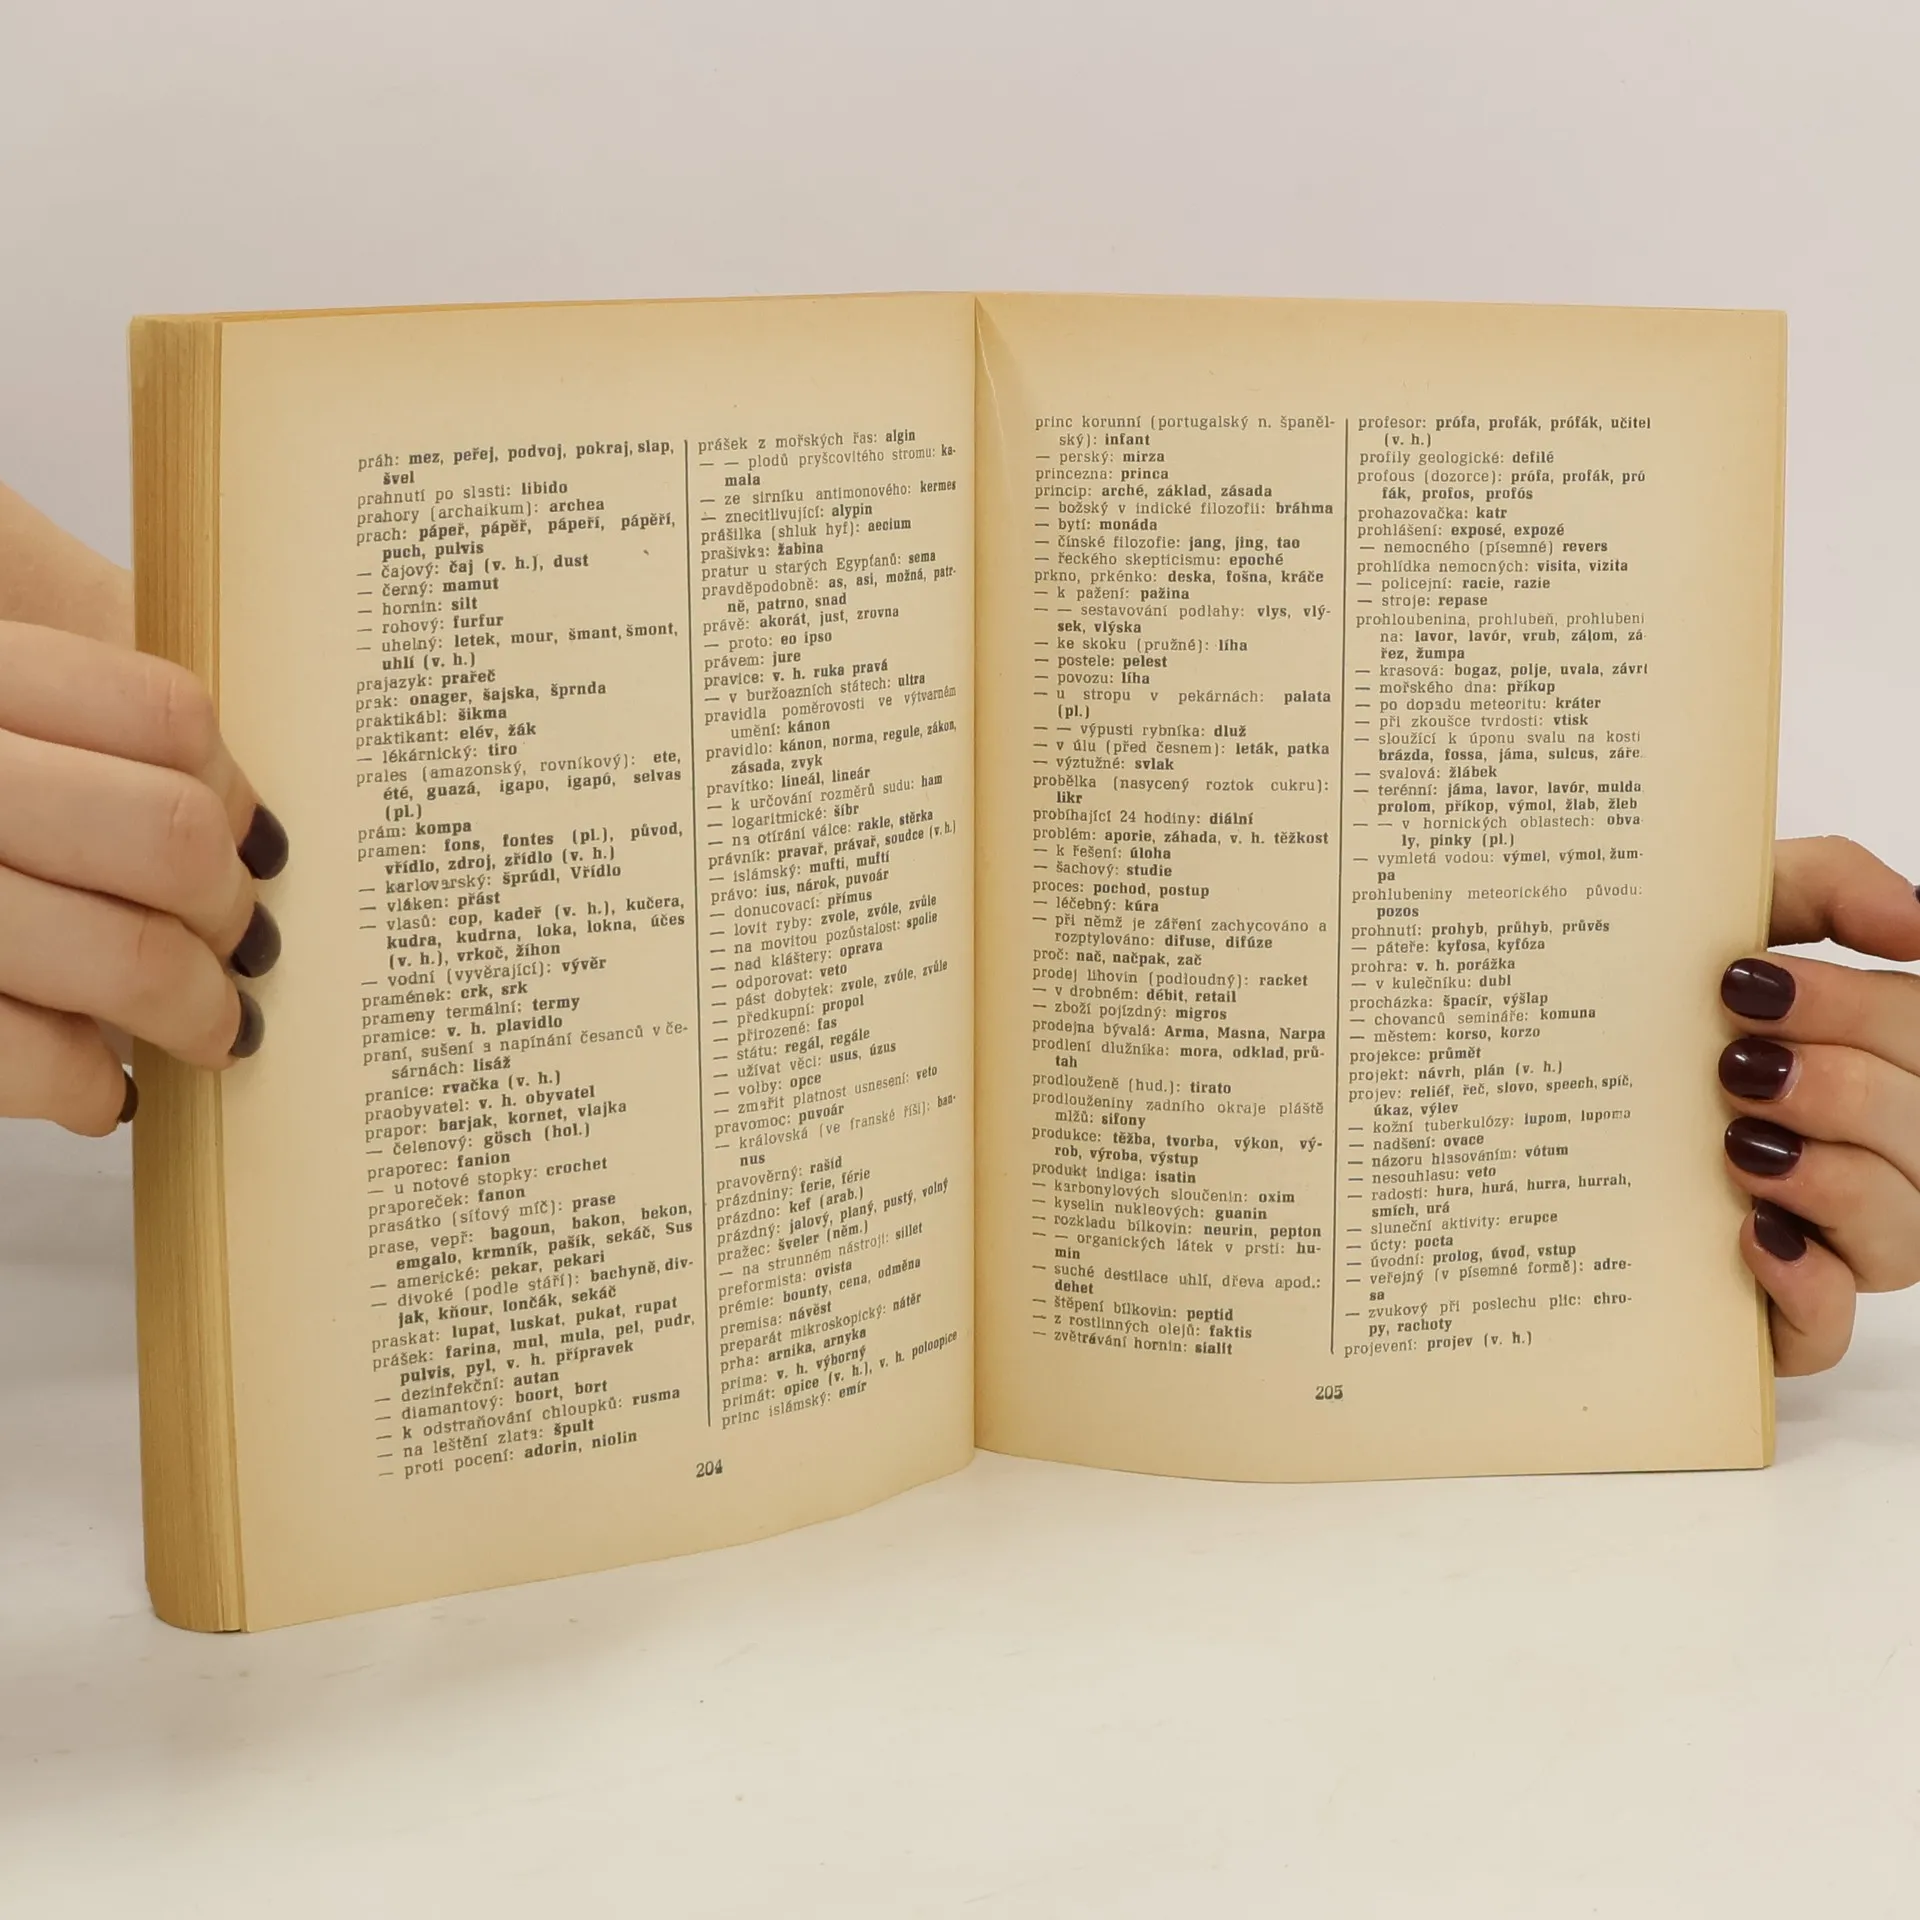 práh: mez, peřej, podvoj, pokraj, slap,
švel
prahnutí po slasti: libido
prahory (archaikum): archea
prach: pápeř, pápěř, pápeří, pápěří,
puch, pulvis
— čajový: čaj (v. h.), dust
— černý: mamut
— hornin: silt
— rohový: furfur
— uhelný: letek, mour, šmant, šmont,
uhlí (v. h.)
prajazyk: prařeč
prak: onager, šajska, šprnda
praktikábl: šikma
praktikant: elév, žák
— lékárnický: tiro
prales (amazonský, rovníkový): ete,
été, guazá, igapo, igapó, selvas
(pl.)
prám: kompa
pramen: fons, fontes (pl.), původ,
vřídlo, zdroj, zřídlo (v. h.)
— karlovarský: šprúdl, Vřídlo
— vláken: přást
— vlasů: cop, kadeř (v. h.), kučera,
kudra, kudrna, loka, lokna, účes
(v. h.), vrkoč, žíhon
— vodní (vyvěrající): vývěr
pramének: crk, srk
prameny termální: termy
pramice: v. h. plavidlo
praní, sušení a napínání česanců v če-
sárnách: lisáž
pranice: rvačka (v. h.)
praobyvatel: v. h. obyvatel
prapor: barjak, kornet, vlajka
— čelenový: gösch (hol.)
praporec: fanion
— u notové stopky: crochet
praporeček: fanon
prasátko (síťový míč): prase
prase, vepř: bagoun, bakon, bekon,
emgalo, krmník, pašík, sekáč, Sus
— americké: pekar, pekari
— divoké (podle stáří): bachyně, div-
jak, kňour, lončák, sekáč
praskat: lupat, luskat, pukat, rupat
prášek: farina, mul, mula, pel, pudr,
pulvis, pyl, v. h. přípravek
— dezinfekční: autan
— diamantový: boort, bort
— k odstraňování chloupků: rusma
— na leštění zlata: špult
— proti pocení: adorin, niolin
prášek z mořských řas: algin
— — plodů pryšcovitého stromu: ka-
mala
— ze sirníku antimonového: kermes
— znecitlivující: alypin
prášilka (shluk hyf): aecium
prašivka: žabina
pratur u starých Egypťanů: sema
pravděpodobně: as, asi, možná, patr-
ně, patrno, snad
právě: akorát, just, zrovna
— proto: eo ipso
právem: jure
pravice: v. h. ruka pravá
— v buržoazních státech: ultra
pravidla poměrovosti ve výtvarném
umění: kánon
pravidlo: kánon, norma, regule, zákon,
zásada, zvyk
pravítko: lineál, lineár
— k určování rozměrů sudu: ham
— logaritmické: šíbr
— na otírání válce: rakle, stěrka
právník: pravař, právař, soudce (v. h.)
— islámský: mufti, muftí
právo: ius, nárok, puvoár
— donucovací: přímus
— lovit ryby: zvole, zvóle, zvůle
— na movitou pozůstalost: spolie
— nad kláštery: oprava
— odporovat: veto
— pást dobytek: zvole, zvóle, zvůle
— předkupní: propol
— přirozené: fas
— státu: regál, regále
— užívat věci: usus, úzus
— volby: opce
— zmařit platnost usnesení: veto
pravomoc: puvoár
— královská (ve franské říši): ban-
nus
pravověrný: rašíd
prázdniny: ferie, férie
prázdno: kef (arab.)
prázdný: jalový, planý, pustý, volný
pražec: šveler (něm.)
— na strunném nástroji: sillet
preformista: ovista
prémie: bounty, cena, odměna
premisa: návěst
preparát mikroskopický: nátěr
prha: arnika, arnyka
prima: v. h. výborný
primát: opice (v. h.), v. h. poloopice
princ islámský: emír
204
princ korunní (portugalský n. španěl-
ský): infant
— perský: mirza
princezna: princa
princip: arché, základ, zásada
— božský v indické filozofii: bráhma
— bytí: monáda
— čínské filozofie: jang, jing, tao
— řeckého skepticismu: epoché
prkno, prkénko: deska, fošna, kráče
— k pažení: pažina
— — sestavování podlahy: vlys, vlý-
sek, vlýska
— ke skoku (pružné): líha
— postele: pelest
— povozu: líha
— u stropu v pekárnách: palata
(pl.)
— — výpusti rybníka: dluž
— v úlu (před česnem): leták, patka
— výztužné: svlak
probělka (nasycený roztok cukru):
likr
probíhající 24 hodiny: diální
problém: aporie, záhada, v. h. těžkost
— k řešení: úloha
— šachový: studie
proces: pochod, postup
— léčebný: kúra
— při němž je záření zachycováno a
rozptylováno: difuse, difúze
proč: nač, načpak, zač
prodej lihovin (podloudný): racket
— v drobném: débit, retail
— zboží pojízdný: migros
prodejna bývalá: Arma, Masna, Narpa
prodlení dlužníka: mora, odklad, prů-
tah
prodlouženě (hud.): tirato
prodlouženiny zadního okraje pláště
mlžů: sifony
produkce: těžba, tvorba, výkon, vý-
rob, výroba, výstup
produkt indiga: isatin
— karbonylových sloučenin: oxim
— kyselin nukleových: guanin
— rozkladu bílkovin: neurin, pepton
— — organických látek v prsti: hu-
min
— suché destilace uhlí, dřeva apod.:
dehet
— štěpení bílkovin: peptid
— z rostlinných olejů: faktis
— zvětrávání hornin: siallit
profesor: prófa, profák, prófák, učitel
(v. h.)
profily geologické: defilé
profous (dozorce): prófa, profák, pró
fák, profos, profós
prohazovačka: katr
prohlášení: exposé, expozé
— nemocného (písemné) revers
prohlídka nemocných: visita, vizita
— policejní: racie, razie
— stroje: repase
prohloubenina, prohlubeň, prohlubeni
na: lavor, lavór, vrub, zálom, zá
řez, žumpa
— krasová: bogaz, polje, uvala, závrt
— mořského dna: příkop
— po dopadu meteoritu: kráter
— při zkoušce tvrdosti: vtisk
— sloužící k úponu svalu na kosti
brázda, fossa, jáma, sulcus, záře
— svalová: žlábek
— terénní: jáma, lavor, lavór, mulda
prolom, příkop, výmol, žlab, žleb
— — v hornických oblastech: obva
ly, pinky (pl.)
— vymletá vodou: výmel, výmol, žum-
pa
prohlubeniny meteorického původu:
pozos
prohnutí: prohyb, průhyb, průvěs
— páteře: kyfosa, kyfóza
prohra: v. h. porážka
— v kulečníku: dubl
procházka: špacír, výšlap
— chovanců semináře: komuna
— městem: korso, korzo
projekce: průmět
projekt: návrh, plán (v. h.)
projev: reliéf, řeč, slovo, speech, spíč,
úkaz, výlev
— kožní tuberkulózy: lupom, lupoma
— nadšení: ovace
— názoru hlasováním: vótum
— nesouhlasu: veto
— radosti: hura, hurá, hurra, hurrah,
smích, urá
— sluneční aktivity: erupce
— úcty: pocta
— úvodní: prolog, úvod, vstup
— veřejný (v písemné formě): adre-
sa
— zvukový při poslechu plic: chro-
py, rachoty
projevení: projev (v. h.)
205